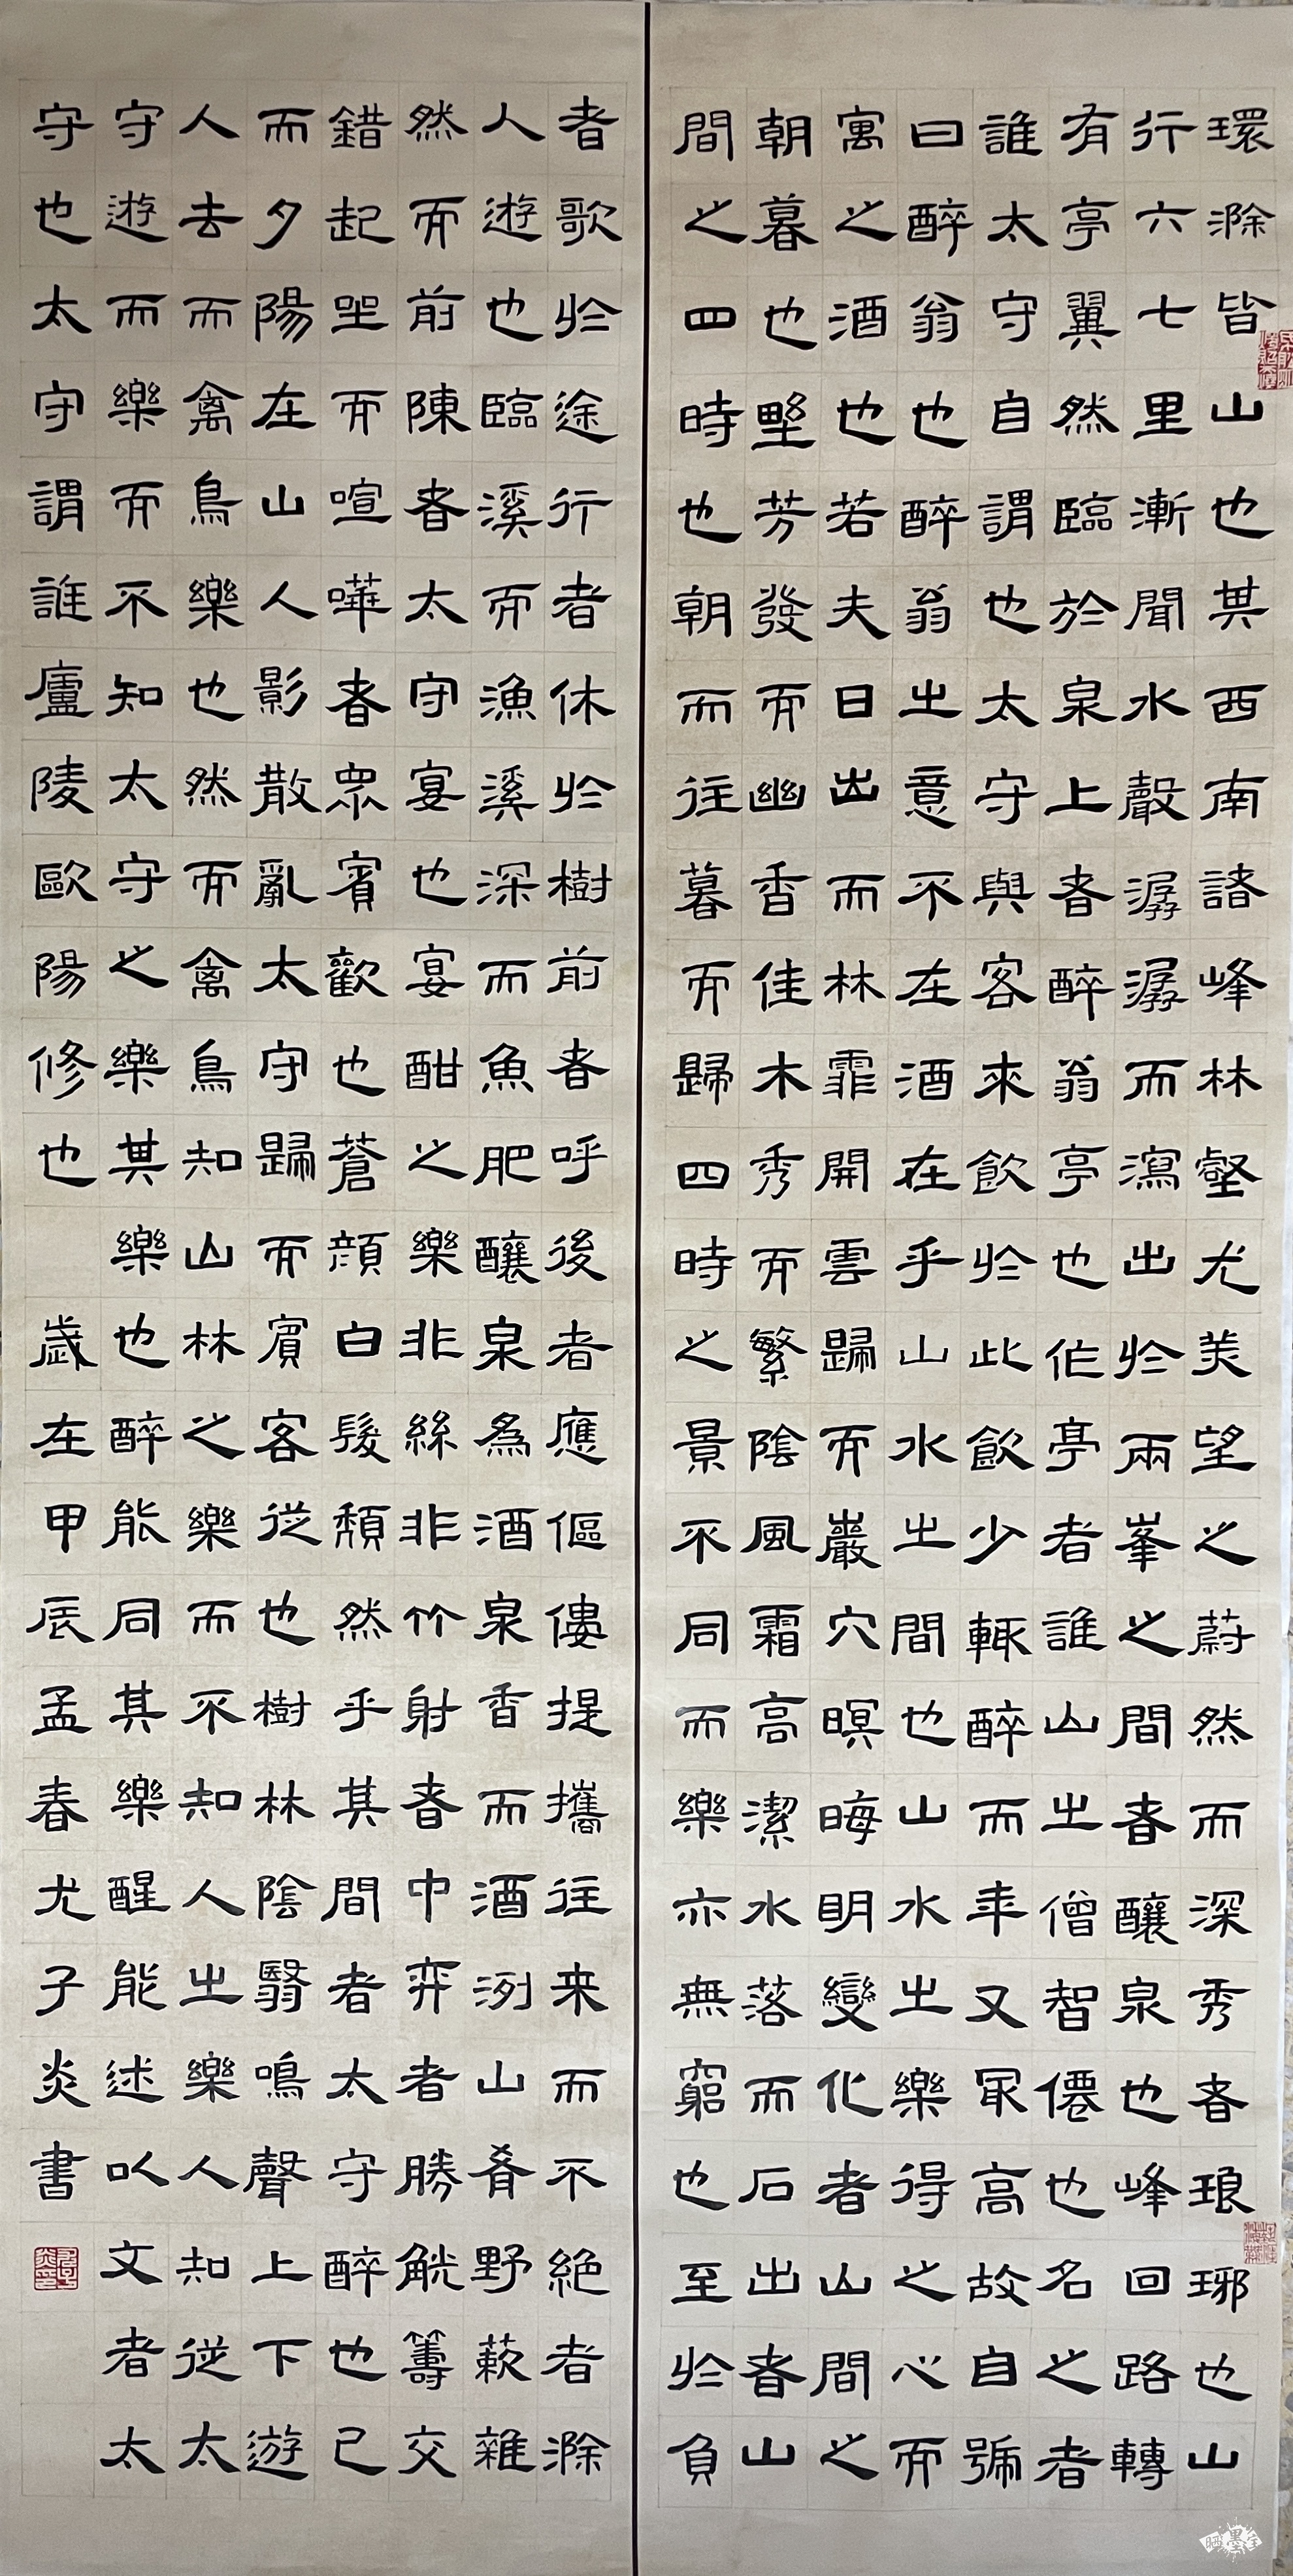 環滁皆山也其西南諸峰林壑尤美望之蔚然而深秀者琅琊也山
行六七里漸聞水聲潺潺而瀉出於兩峯之間者釀泉也峰回路轉
有亭翼然臨於泉上者醉翁亭也作亭者誰山之僧智僊也名之者
誰太守自謂也太守與客來飲於此飲少輒醉而年又最高故自號
曰醉翁也醉翁之意不在酒在乎山水之間也山水之樂得之心而
寓之酒也若夫日出而林霏開雲歸而巖穴暝晦明變化者山間之
朝暮也野芳發而幽香佳木秀而繁陰風霜高潔水落而石出者山
間之四時也朝而往暮而歸四時之景不同而樂亦無窮也至於負
者歌於途行者休於樹前者呼後者應傴僂提攜往来而不絕者滁
人遊也臨溪而漁溪深而魚肥釀泉為酒泉香而酒洌山肴野蔌雜
然而前陳者太守宴也宴酣之樂非絲非竹射者中弈者勝觥籌交
錯起坐而喧嘩者眾賓歡也蒼顏白髮頹然乎其間者太守醉也已
而夕陽在山人影散亂太守歸而賓客從也樹林陰翳鳴聲上下遊
人去而禽鳥樂也然而禽鳥知山林之樂而不知人之樂人知從太
守遊而樂而不知太守之樂其樂也醉能同其樂醒能述以文者太
守也太守謂誰廬陵歐陽修也 歲在甲辰孟春尤子炎書
晒墨宝